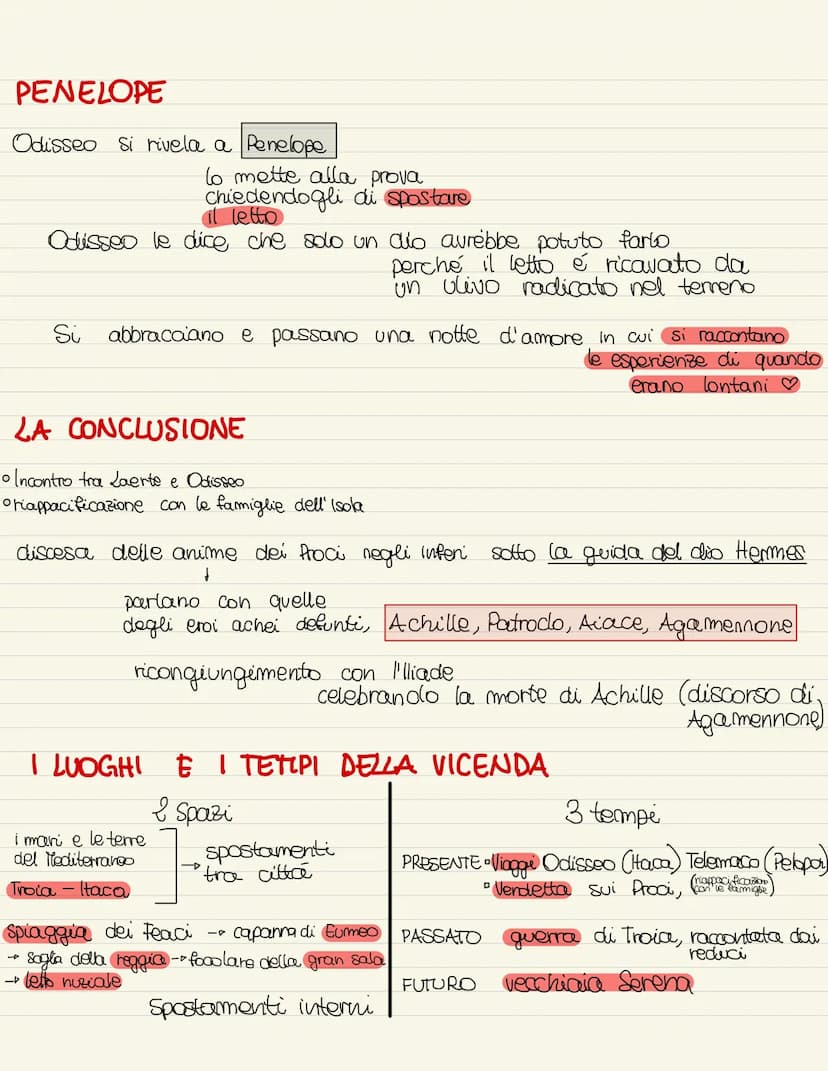 PENELOPE
Odisseo si rivela a Penelope
lo mette alla prova
chiedendogli di spostare
il letto
Odisseo le dice, che solo un dio avrebbe potuto farlo
perché il letto é ricavato da
un ulivo radicato nel terreno
Si abbracciano e passano una notte d'amore in cui si raccontano
le esperienze di quando
erano lontani ♡
LA CONCLUSIONE
° Incontro tra Laerte e Odisseo
° riappacificazione con le famiglie dell'Isola
discesa delle anime dei Proci negli inferi sotto la guida del dio Hermes
↓
parlano con quelle
degli eroi achei defunti, Achille, Patroclo, Aiace, Agamennone
ricongiungimento con l'Iliade
celebrando la morte di Achille (discorso di
Agamennone)
I LUOGHI E I TEMPI DELLA VICENDA
2 Spazi
i mari e le terre
del Mediterraneo
Troia - Itaca
→ spostamenti
tra città
spiaggia dei Feaci → capanna di Eumeo
→ soglia della reggia → focolare della gran sala
→ letto nuziale
Spostamenti interni
3 tempi
PRESENTE ° Viaggi Odisseo (Itaca) Telemaco (Pelopon)
° Vendetta sui Proci, (riappacificazione
con le famiglie)
PASSATO guerra di Troia, raccontata dai
reduci
FUTURO vecchiaia Serena